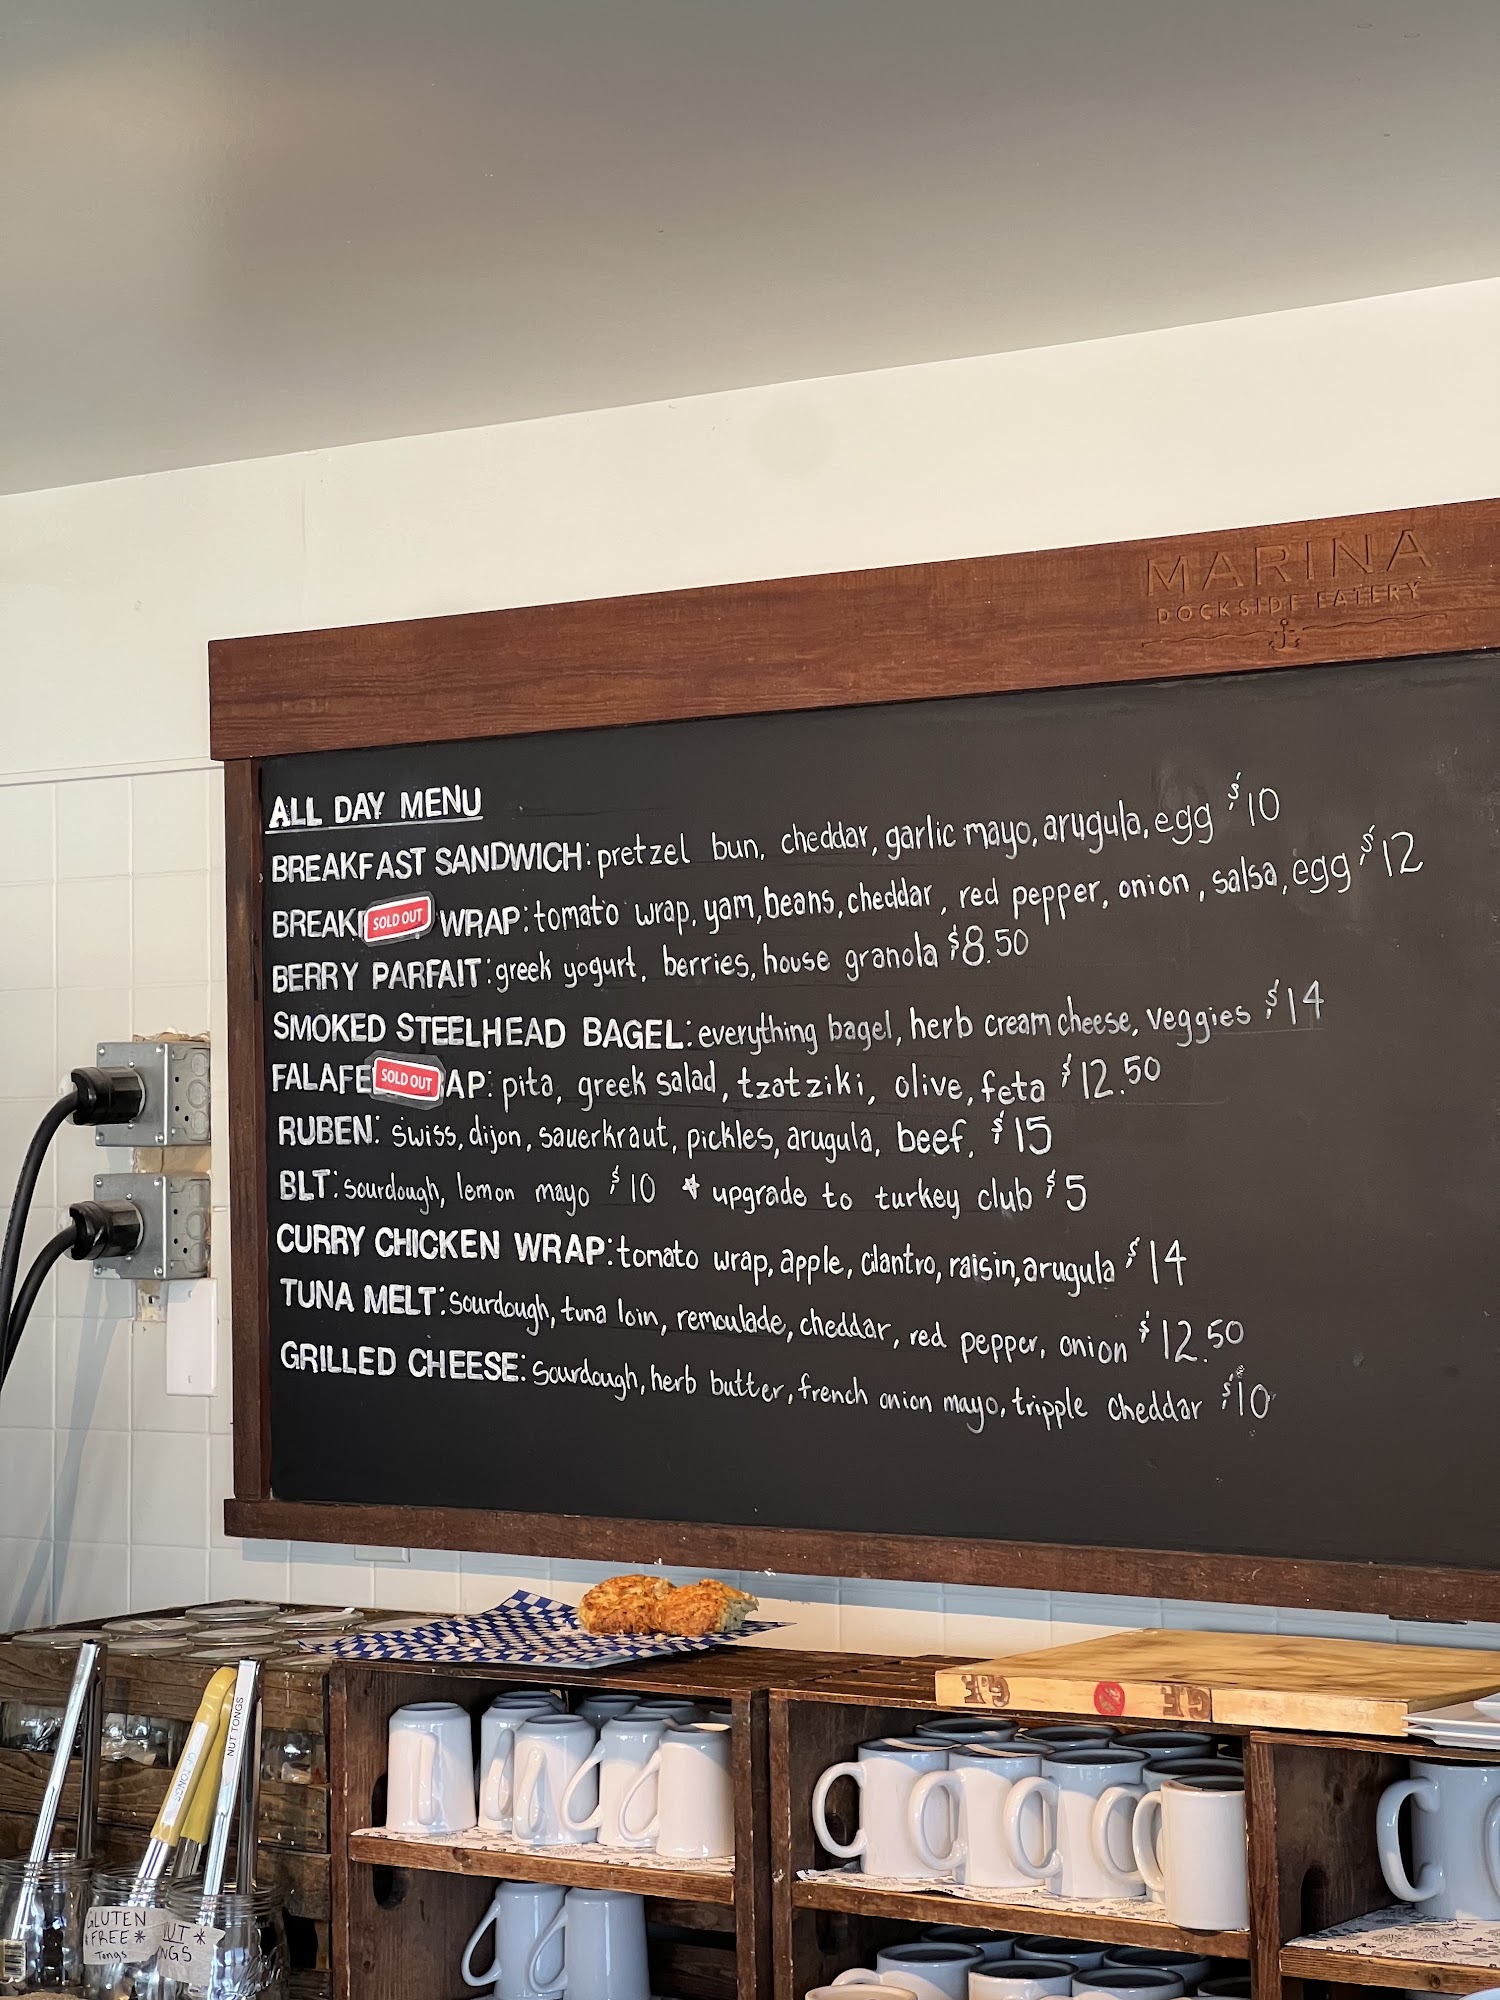 MARINA
DOCKSIDE EATERY
ALL DAY MENU
BREAKFAST SANDWICH: pretzel bun, cheddar, garlic mayo, arugula, egg $10
BREAK SOLD OUT WRAP: tomato wrap, yam, beans, cheddar, red pepper, onion, salsa, egg $12
BERRY PARFAIT: greek yogurt, berries, house granola $8.50
SMOKED STEELHEAD BAGEL: everything bagel, herb cream cheese, veggies $14
FALAFE SOLD OUT AP: pita, greek salad, tzatziki, olive, feta $12.50
RUBEN: swiss, dijon, sauerkraut, pickles, arugula, beef, $15
BLT: sourdough, lemon mayo $10 * upgrade to turkey club $5
CURRY CHICKEN WRAP: tomato wrap, apple, cilantro, raisin, arugula $14
TUNA MELT: sourdough, tuna loin, remoulade, cheddar, red pepper, onion $12.50
GRILLED CHEESE: sourdough, herb butter, french onion mayo, tripple cheddar $10
GF GF
NUT TONGS
GF TONGS
GLUTEN
FREE*
Tongs
NUT *
NGS